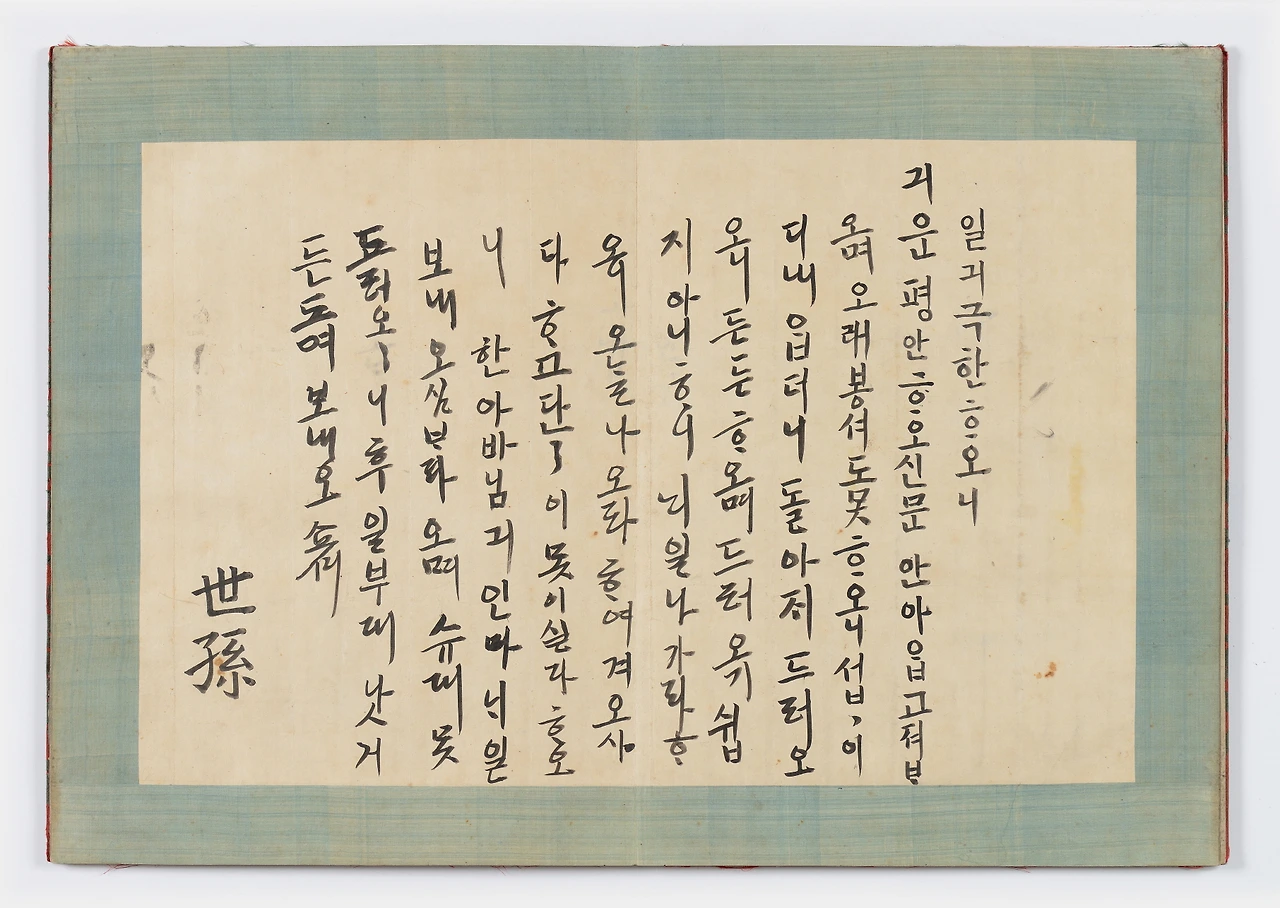 일긔극한ᄒᆞ오니
긔운평안ᄒᆞ오신문안아ᄋᆞᆸ고져ᄇᆞ
오며오래봉셔도못ᄒᆞ오니섭〃이
디내ᄋᆞᆸ더니돌아저드러오
오니든든ᄒᆞ오며드러오기쉽
지아니ᄒᆞ니ᄂᆡ일나가라ᄒᆞ
오니오ᄂᆞᆯ나오라ᄒᆞ여겨오샤
다ᄒᆞ고단〃이못이실다ᄒᆞ오
니 한아바님긔인마ᄂᆡ일
보내오심ᄇᆞ라오며슈대못
드러오〃니후일부대낫거
든드려보내오쇼셔
世孫